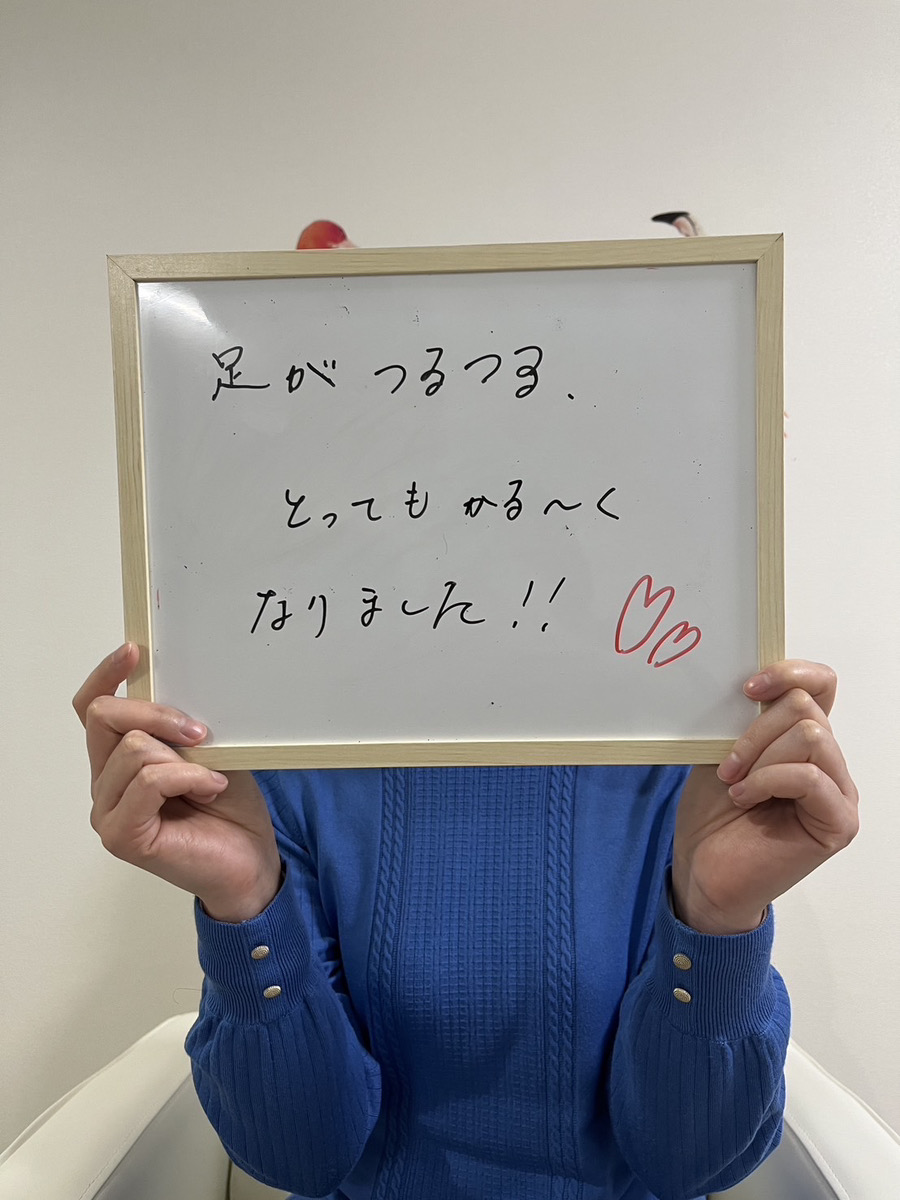 足がつるつる、
とってもかる〜く
なりました!!